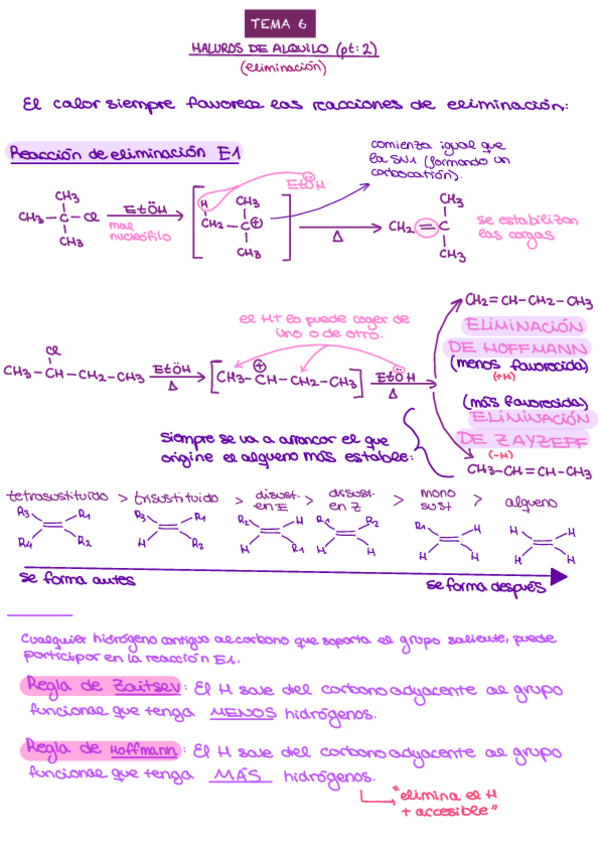 TEMA 6
HALUROS DE ALQUILO (pt:2)
(eliminación)
El calor siempre favorece las reacciones de eliminación:
Reacción de eliminación E1
comienza igual que
la SN1 (formando un
carbocatión).
CH3
CH3-C-Cl
CH3
EtÖH
mal
nucleófilo
H CH3
CH2-C⊕
CH3
EtÖH
Δ
CH3
CH2=C
CH3
se estabilizan
las cargas
el H+ lo puede coger de
uno o de otro.
Cl
CH3-CH-CH2-CH3
EtÖH
Δ
[CH3-CH-CH2-CH3]
⊕
EtÖH
Δ
CH2=CH-CH2-CH3
ELIMINACIÓN
DE HOFFMANN
(menos favorecida)
(+H)
(más favorecida)
ELIMINACIÓN
DE ZAYZEFF
(-H)
CH3-CH=CH-CH3
Siempre se va a arrancar el que
origine el alqueno más estable:
tetrasustituido > trisustituido > disust. en E > disust. en Z > mono sust > alqueno
R3 R1 R3 R1 R2 H R2 R1 H H H
R4 R2 H R2 H R1 H H H H H H
se forma antes
se forma después
Cualquier hidrógeno contiguo al carbono que soporta el grupo saliente, puede
participar en la reacción E1.
Regla de Zaitsev: El H sale del carbono adyacente al grupo
funcional que tenga MENOS hidrógenos.
Regla de Hoffmann: El H sale del carbono adyacente al grupo
funcional que tenga MÁS hidrógenos.
"elimina el H
+ accesible"